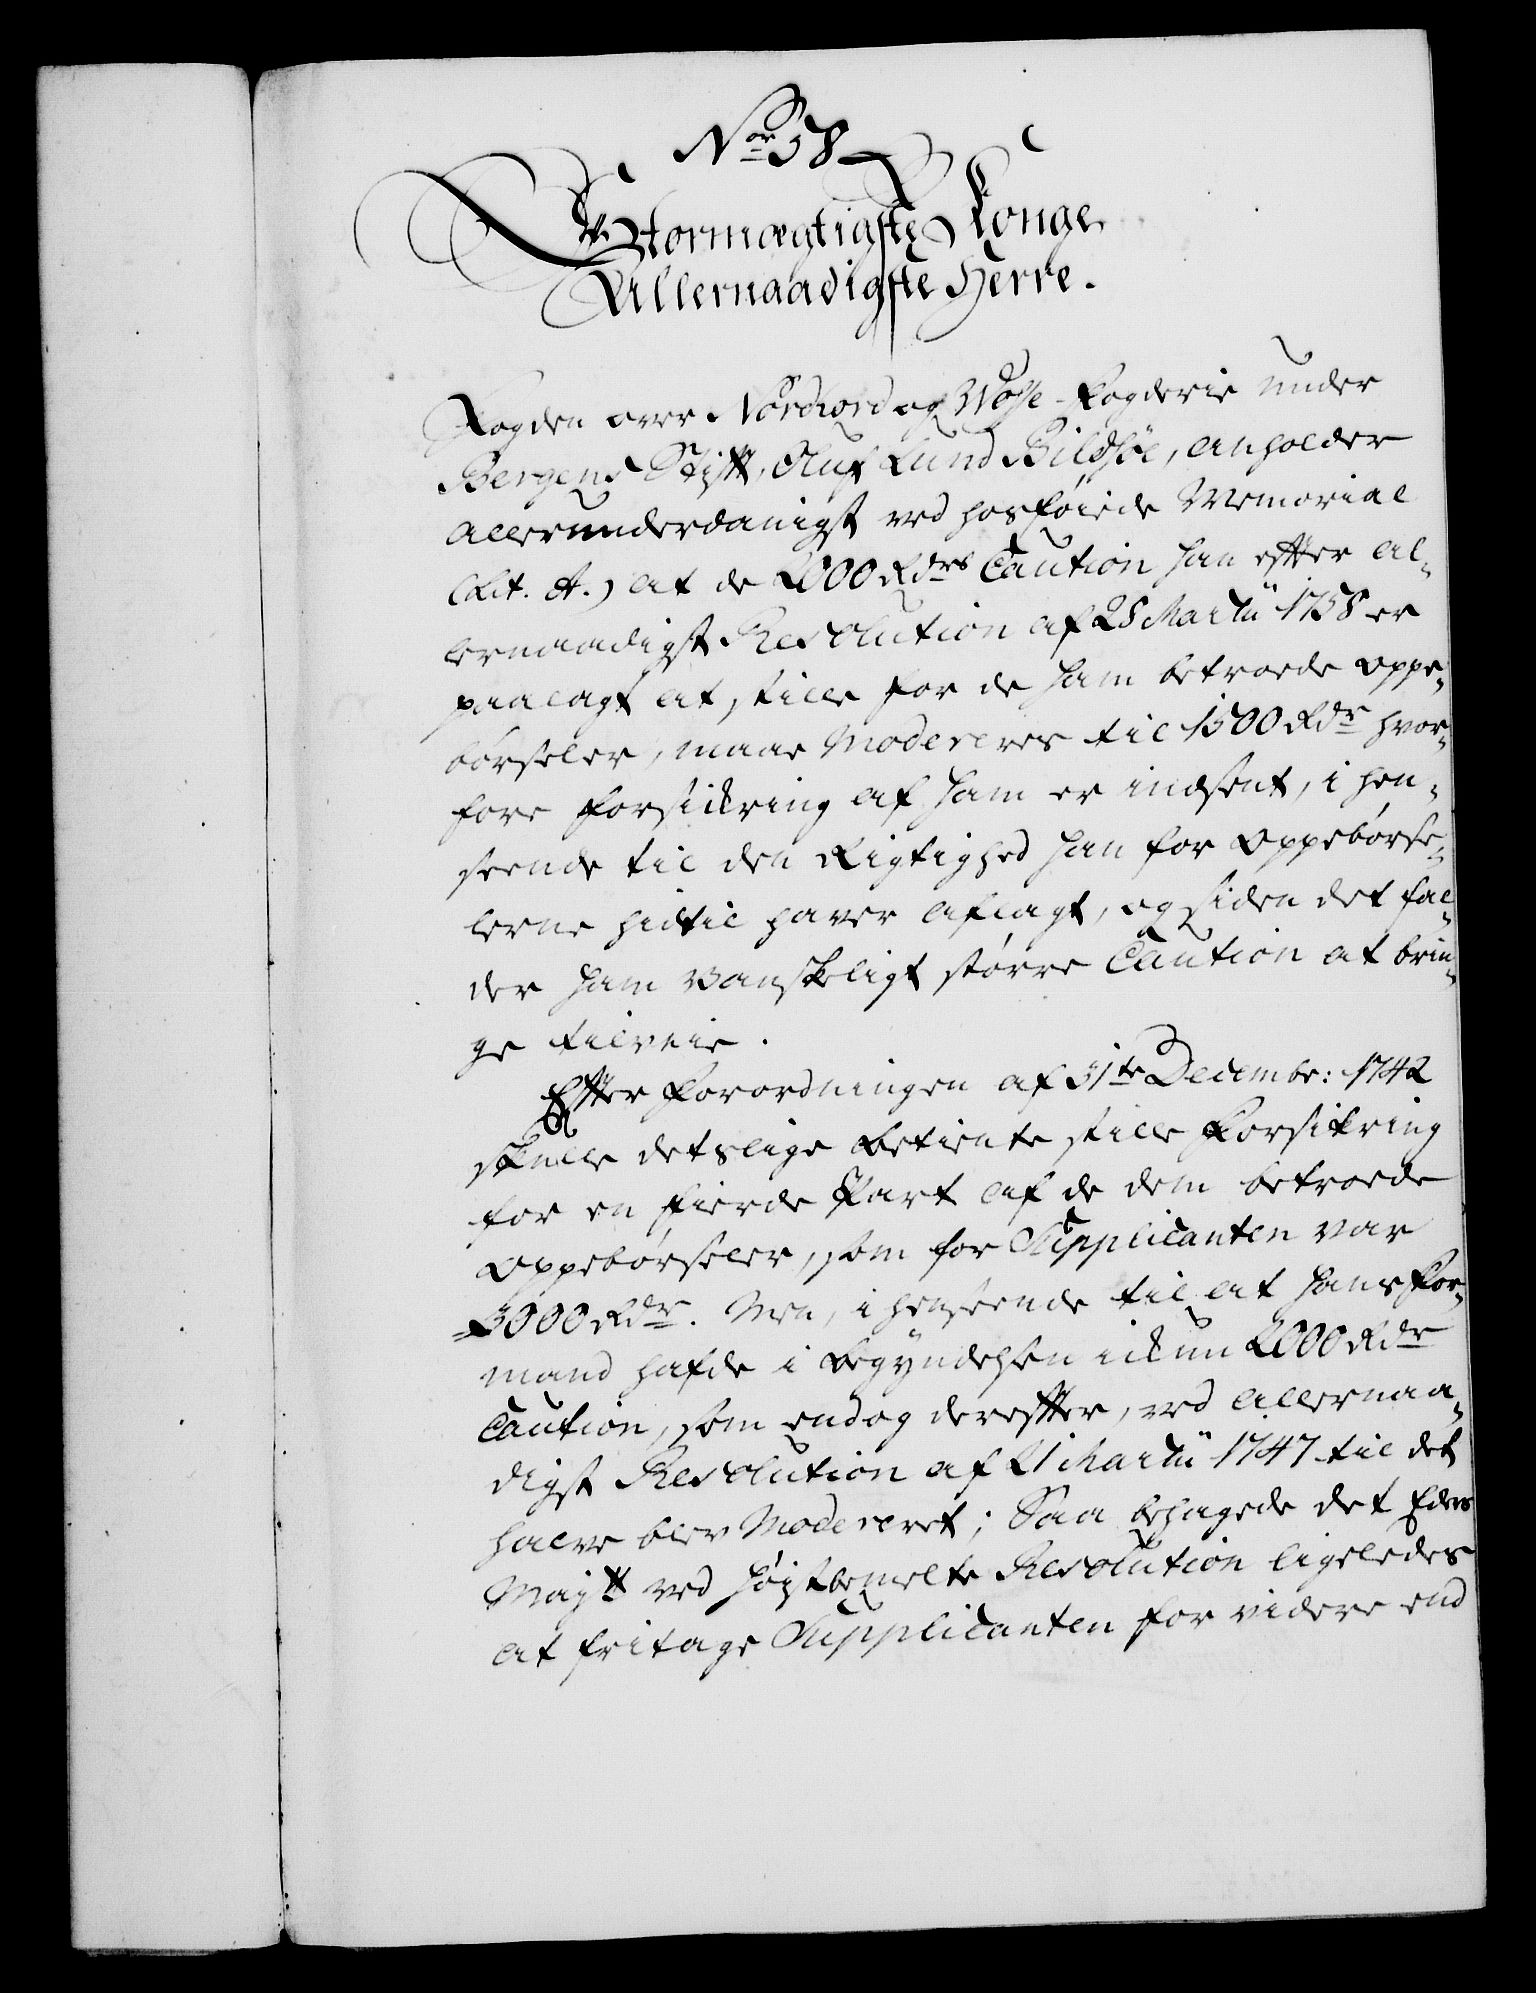 Nor 58
Stormægtigste Konge
Allernaadigste Herre.
Fogden over Nordhord og Woss-Fogderie under
Bergens Stift, Oluf Lund Bildsøe, anholder
allerunderdanigst ved hosføiede Memorial
(Lit. A.) at de 2000 Rdrs Caution han efter al-
lernaadigst Resolution af 28 Martii 1758 er
paalagt at stille for de ham betroede oppe-
børseler, maae Modereres til 1500 Rdr hvor-
fore Forsikring af ham er indsent, i hen-
seende til den Rigtighed han for Oppebørse-
lerne hidtil haver aflagt, og siden det fal-
der ham vanskeligt større Caution at brin-
ge tilveie.
Efter Forordningen af 31te Decembr: 1742
skulle detslige Betiente stille Forsikring
for en fierde Part af de dem betroede
Oppebørseler, som for Supplicanten var
3000 Rdr. Men, i henseende til at hans For-
mand hafde i Begyndelsen ickun 2000 Rdr
Caution, som endog derefter, ved allernaa-
digst Resolution af 21 Martii 1747 til det
halve blev Modereret; Saa behagede det Eders
Majtt ved høistbemelte Resolution ligeledes
at fritage Supplicanten for videre end